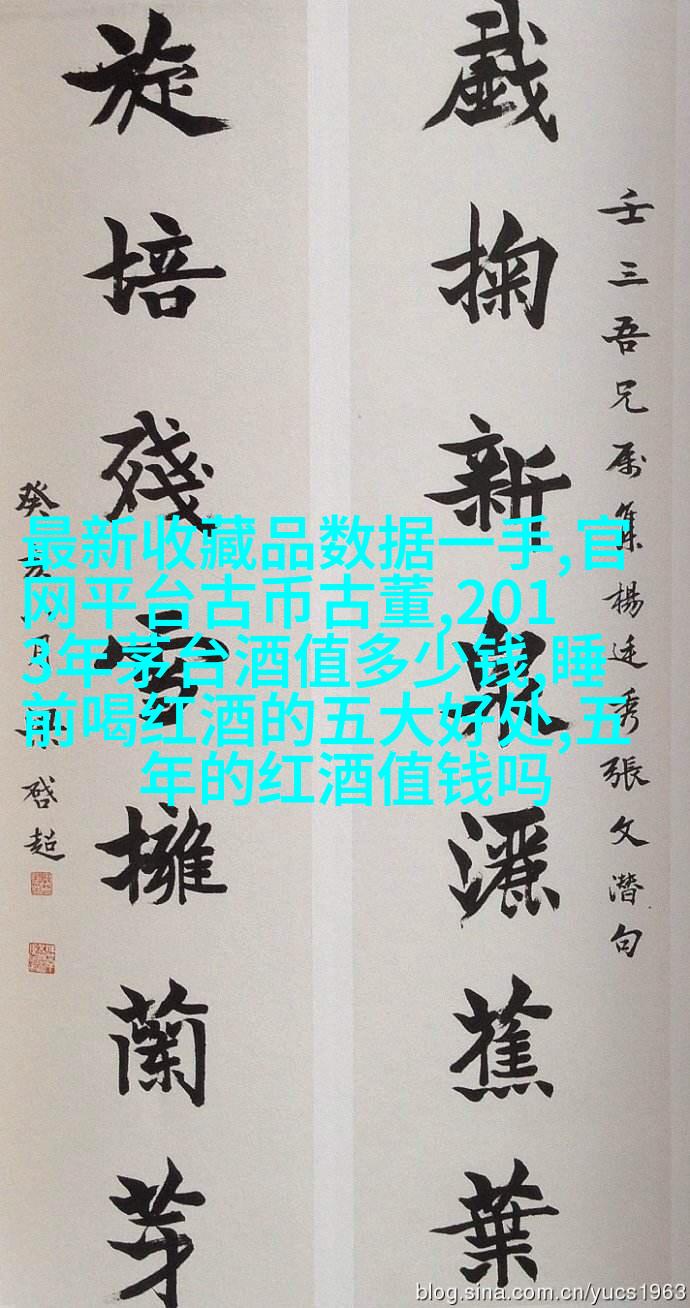 壬三吾兄属集楊廷秀張文潛句
戲掬新泉灑蕉葉
旋培殘雪擁蘭芽
癸亥 月梁啓超
最新收藏品数据一手,官
网平台古币古董,201
3年茅台酒值多少钱,睡
前喝红酒的五大好处,五
年的红酒值钱吗
blog.sina.com.cn/yucs1963